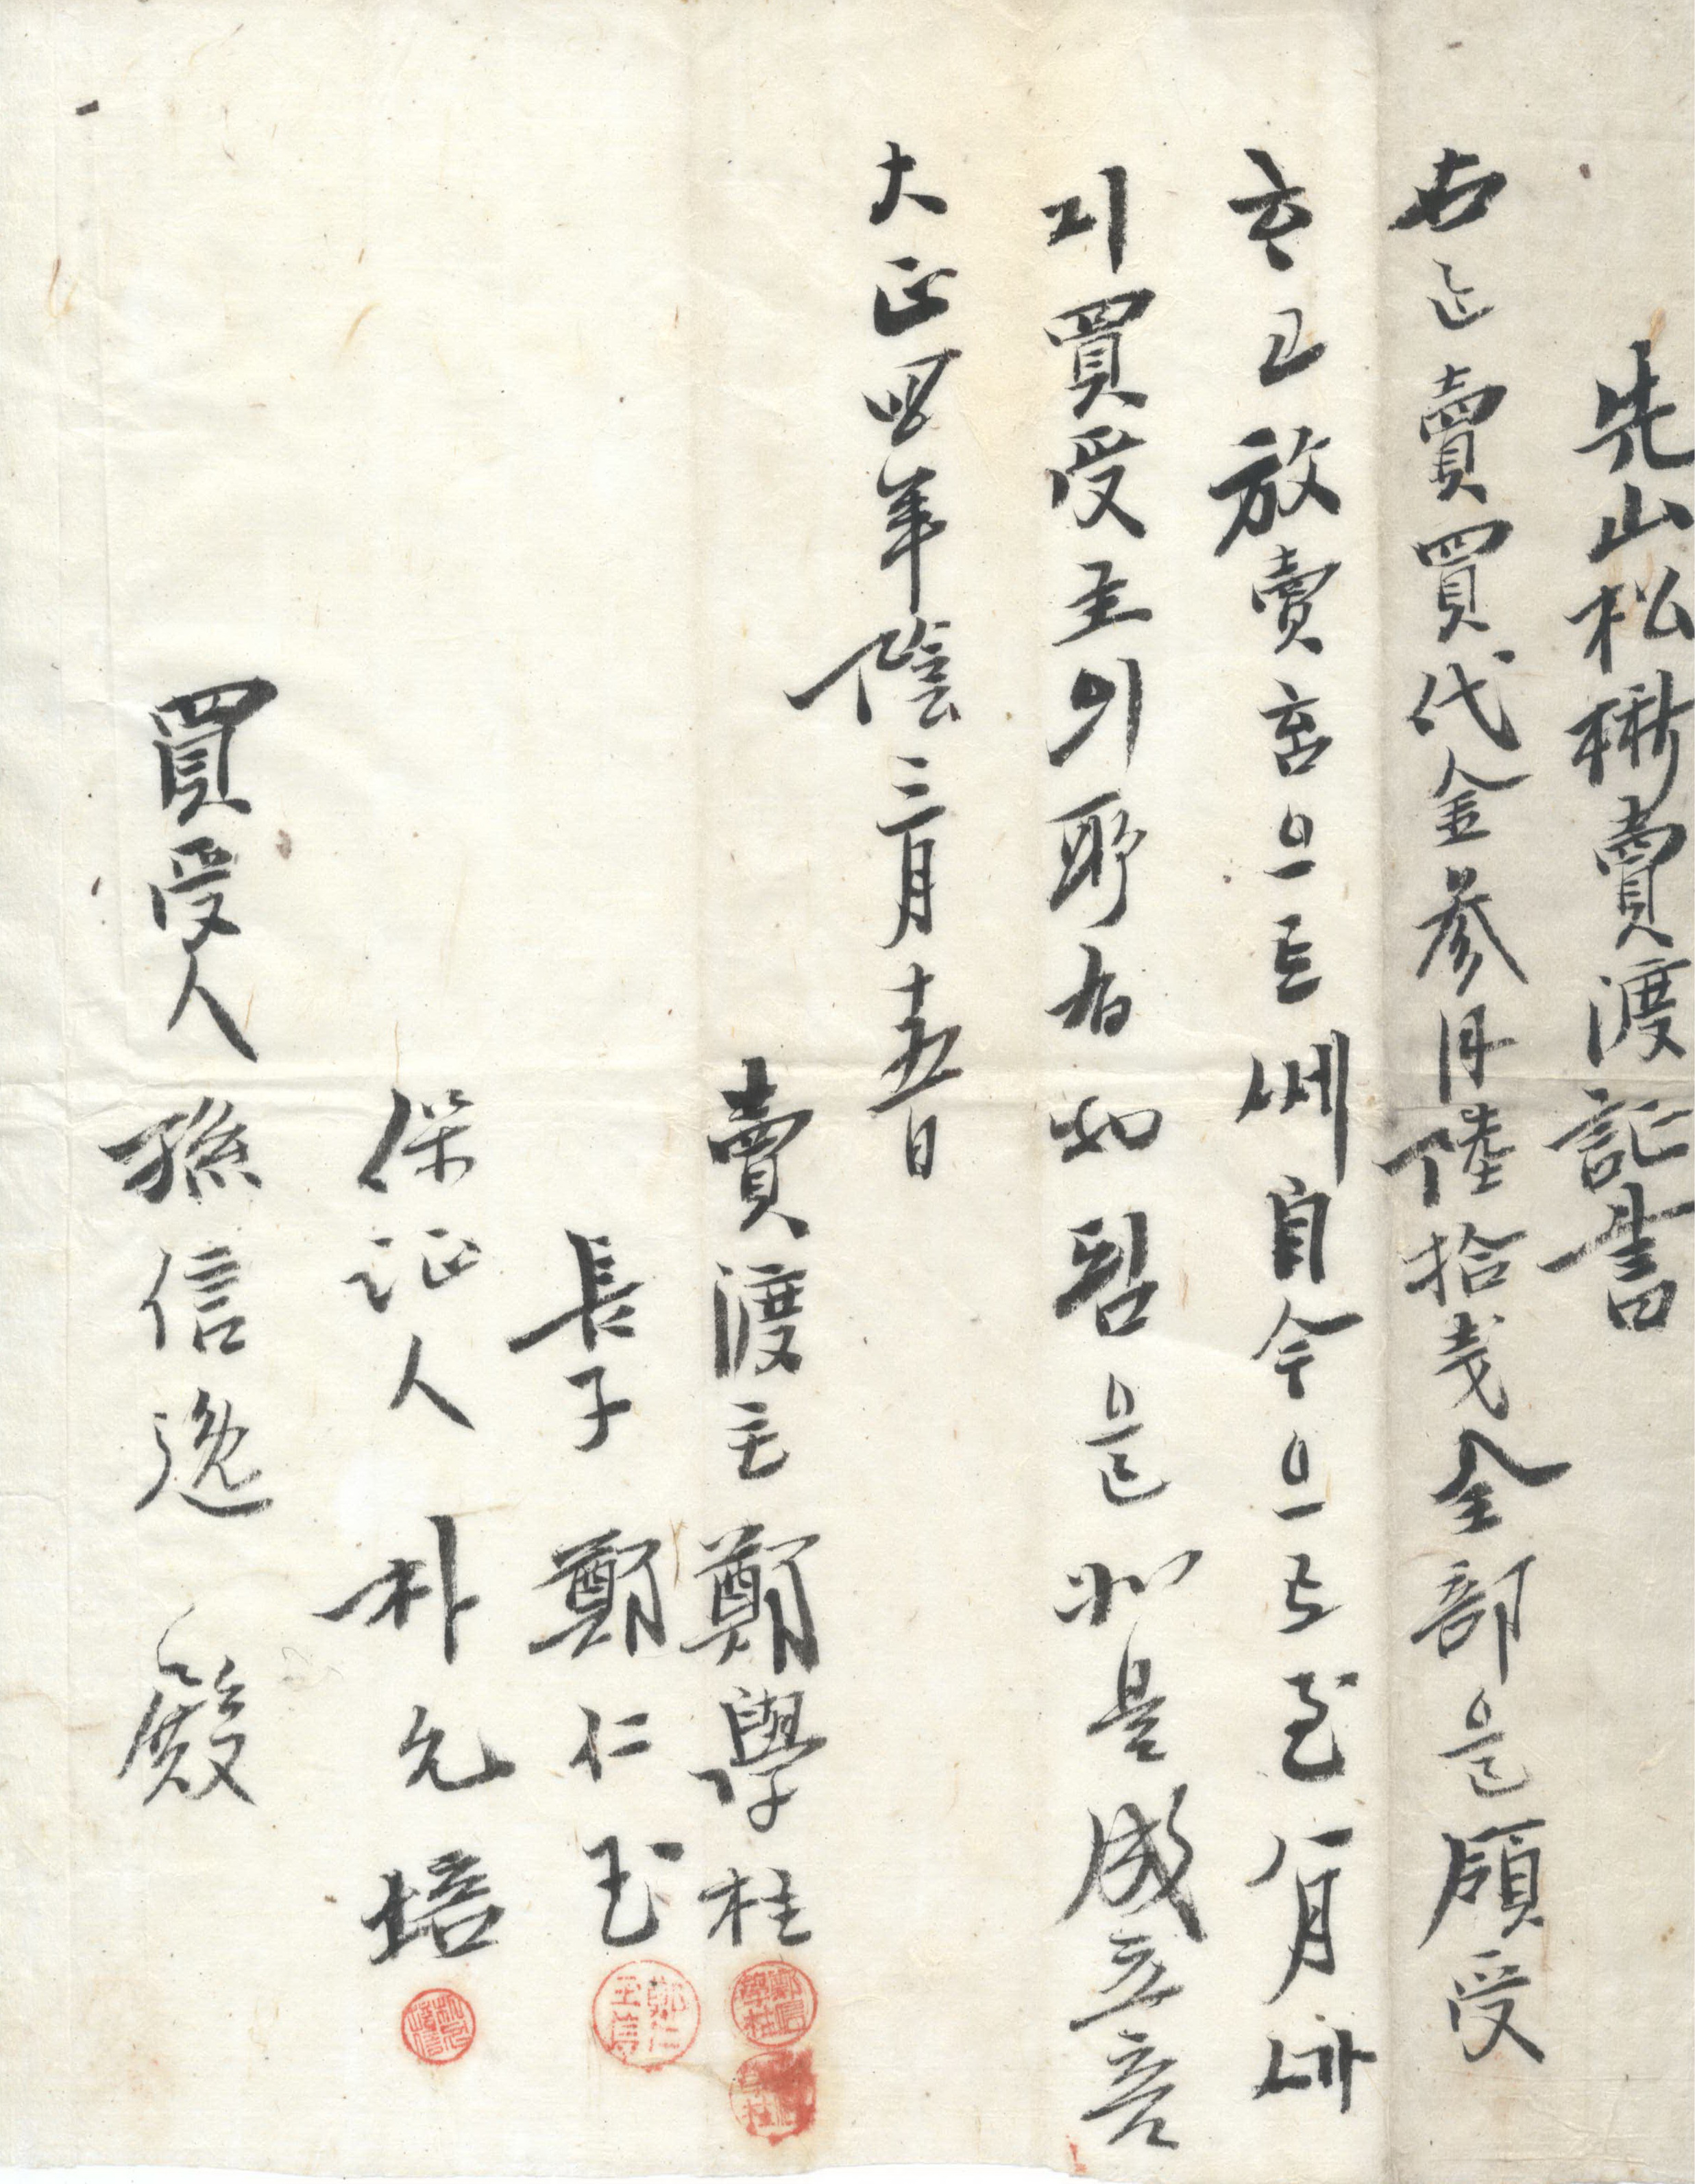 先山松楸賣渡証書
右은賣買代金參円陸拾戔全部을領受
하고放賣홈으로 自今으로至 月
지買受主의 을如是成立音
大正四年陰三月十五日
賣渡主 鄭學柱
長子 鄭仁玉
保証人 朴允培
買受人 孫信逸 殿